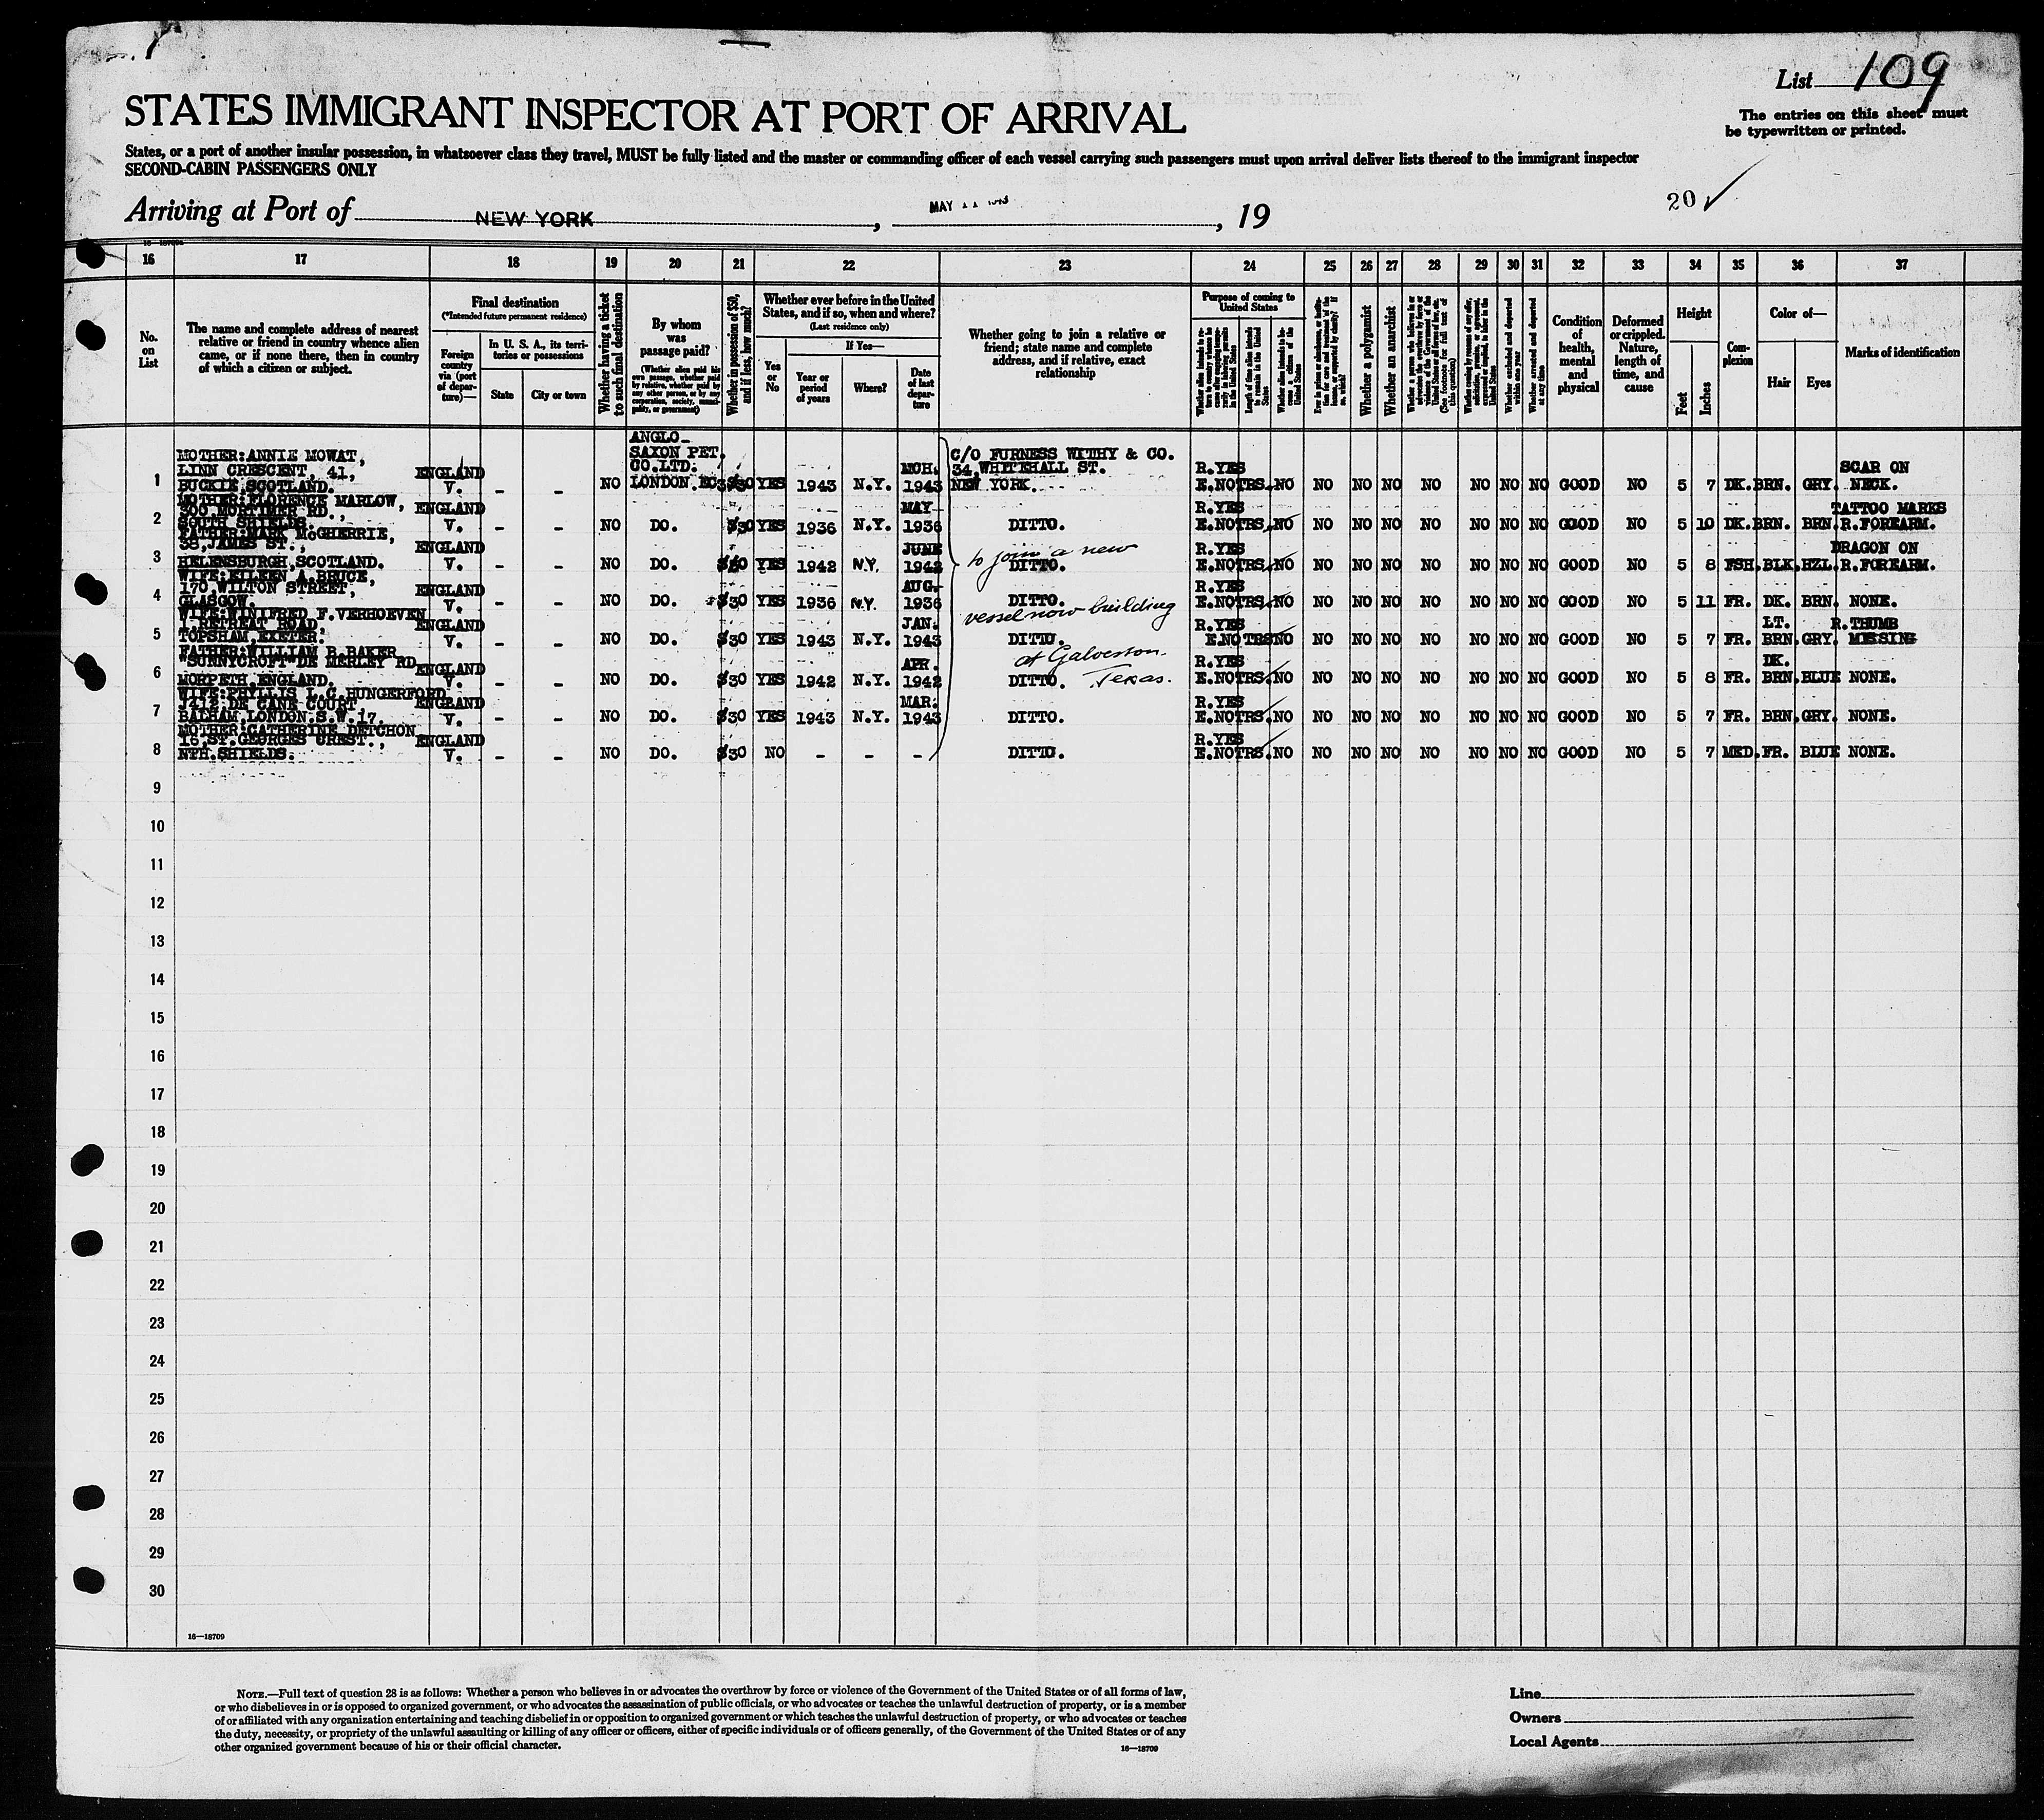 List 109
STATES IMMIGRANT INSPECTOR AT PORT OF ARRIVAL
The entries on this sheet must
be typewritten or printed.
States, or a port of another insular possession, in whatsoever class they travel, MUST be fully listed and the master or commanding officer of each vessel carrying such passengers must upon arrival deliver lists thereof to the immigrant inspector
SECOND-CABIN PASSENGERS ONLY
Arriving at Port of NEW YORK, MAY 11 1943, 19
20 ✓
16 17 18 19 20 21 22 23 24 25 26 27 28 29 30 31 32 33 34 35 36 37
No.
on
List
The name and complete address of nearest
relative or friend in country whence alien
came, or if none there, then in country
of which a citizen or subject.
Final destination
(*Intended future permanent residence)
Foreign
country
via (port
of depar-
ture)—
In U. S. A., its terri-
tories or possessions
State
City or town
Whether having a ticket
to such final destination
By whom
was
passage paid?
(Whether alien paid his
own passage, whether paid
by relative, whether paid by
any other person, or by any
corporation, society, munici-
pality, or government)
Whether in possession of $50,
and if less, how much?
Whether ever before in the United
States, and if so, when and where?
(Last residence only)
Yes
or
No
If Yes—
Year or
period
of years
Where?
Date
of last
depar-
ture
Whether going to join a relative or
friend; state name and complete
address, and if relative, exact
relationship
Purpose of coming to
United States
Length of time alien intends
to remain in the United
States
Whether alien intends to be-
come a citizen of the
United States
Whether a polygamist
Whether an anarchist
Whether arrested and deported
within one year
Whether arrested and deported
at any time
Condition
of
health,
mental
and
physical
Deformed
or crippled.
Nature,
length of
time, and
cause
Height
Feet
Inches
Com-
plexion
Color of—
Hair
Eyes
Marks of identification
1 MOTHER:ANNIE MOWAT,
LINN CRESCENT, 41,
BUCKIE,SCOTLAND.
ENGLAND
V. - - NO
ANGLO-
SAXON PET.
CO.LTD.
LONDON.EC3 $30 YES 1943 N.Y. MCH. 1943
C/O FURNESS WITHY & CO.
34,WHITEHALL ST.
NEW YORK.
R.YES
E.NO TRS. NO NO NO NO NO NO NO NO GOOD NO 5 7 DK. BRN. GRY. SCAR ON
NECK.
2 MOTHER:FLORENCE MARLOW,
300 MORTIMER RD.,
SOUTH SHIELDS.
ENGLAND
V. - - NO DO. $30 YES 1936 N.Y. MAY 1936 DITTO.
R.YES
E.NO TRS. NO NO NO NO NO NO NO NO GOOD NO 5 10 DK. BRN. BRN. TATTOO MARKS
R.FOREARM.
3 FATHER:MARK McGHERRIE,
38,JAMES ST.,
HELENSBURGH,SCOTLAND.
ENGLAND
V. - - NO DO. YES 1942 N.Y. JUNE 1942 DITTO.
R.YES
E.NO TRS. NO NO NO NO NO NO NO NO GOOD NO 5 8 FSH. BLK. HZL. DRAGON ON
R.FOREARM.
to join a new
4 WIFE:EILEEN A.BRUCE,
170,WILTON STREET,
GLASGOW.
ENGLAND
V. - - NO DO. $30 YES 1936 N.Y. AUG. 1936 DITTO.
R.YES
E.NO TRS. NO NO NO NO NO NO NO NO GOOD NO 5 11 FR. DK. BRN. NONE.
vessel now building
5 WIFE:WINIFRED F.VERHOEVEN
1,RETREAT ROAD,
TOPSHAM,EXETER.
ENGLAND
V. - - NO DO. $30 YES 1943 N.Y. JAN. 1943 DITTO.
R.YES
E.NO TRS NO NO NO NO NO NO NO NO GOOD NO 5 7 FR. LT. BRN. GRY. R.THUMB
MISSING
at Galveston.
6 FATHER:WILLIAM B.BAKER
"SUNNYCROFT"DE MERLEY RD
MORPETH.ENGLAND.
ENGLAND
V. - - NO DO. $30 YES 1942 N.Y. APR. 1942 DITTO.
R.YES
E.NO TRS. NO NO NO NO NO NO NO NO GOOD NO 5 8 FR. DK. BRN. BLUE NONE.
Texas.
7 WIFE:PHYLLIS L.C.HUNGERFORD
J412,DE CANE COURT
BALHAM,LONDON.S.W.17.
ENGLAND
V. - - NO DO. $30 YES 1943 N.Y. MAR. 1943 DITTO.
R.YES
E.NO TRS. NO NO NO NO NO NO NO NO GOOD NO 5 7 FR. BRN. GRY. NONE.
8 MOTHER:CATHERINE DETCHON
16,ST.GEORGES CREST.,
NTH.SHIELDS.
ENGLAND
V. - - NO DO. $30 NO - - - DITTO.
R.YES
E.NO TRS. NO NO NO NO NO NO NO NO GOOD NO 5 7 MED. FR. BLUE NONE.
9
10
11
12
13
14
15
16
17
18
19
20
21
22
23
24
25
26
27
28
29
30
16—18709
NOTE.—Full text of question 28 is as follows: Whether a person who believes in or advocates the overthrow by force or violence of the Government of the United States or of all forms of law,
or who disbelieves in or is opposed to organized government, or who advocates the assassination of public officials, or who advocates or teaches the unlawful destruction of property, or is a member
of or affiliated with any organization entertaining and teaching disbelief in or opposition to organized government or which teaches the unlawful destruction of property, or who advocates or teaches
the duty, necessity, or propriety of the unlawful assaulting or killing of any officer or officers, either of specific individuals or of officers generally, of the Government of the United States or of any
other organized government because of his or their official character.
16—18709
Line
Owners
Local Agents